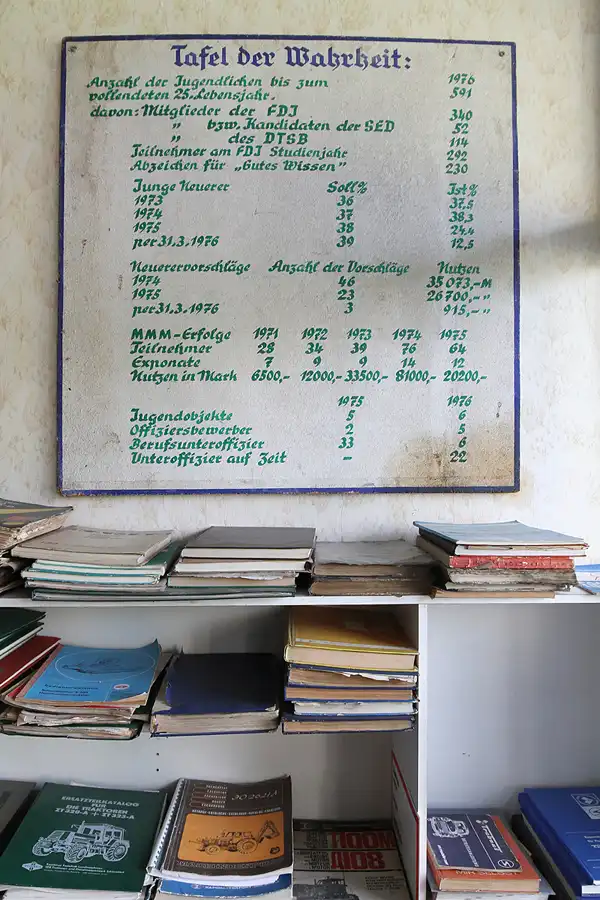 Tafel der Wahrheit:
Anzahl der Jugendlichen bis zum 1976
vollendeten 25. Lebensjahr. 591
davon: Mitglieder der FDJ 340
" bzw. Kandidaten der SED 52
" des DTSB 114
Teilnehmer am FDJ Studienjahr 292
Abzeichen für „Gutes Wissen" 230
Junge Neuerer Soll% Ist%
1973 36 37,5
1974 37 38,3
1975 38 24,4
per 31.3.1976 39 12,5
Neuerervorschläge Anzahl der Vorschläge Nutzen
1974 46 35 073,-M
1975 23 26 700,- "
per 31.3.1976 3 915,- "
MMM-Erfolge 1971 1972 1973 1974 1975
Teilnehmer 28 34 39 76 64
Exponate 7 9 9 14 12
Nutzen in Mark 6500,- 12000,- 33500,- 81000,- 20200,-
1975 1976
Jugendobjekte 5 6
Offiziersbewerber 2 5
Berufsunteroffizier 33 6
Unteroffizier auf Zeit - 22
ERSATZTEILKATALOG
FÜR
DIE TRAKTOREN
ZT 320-A + ZT 323-A